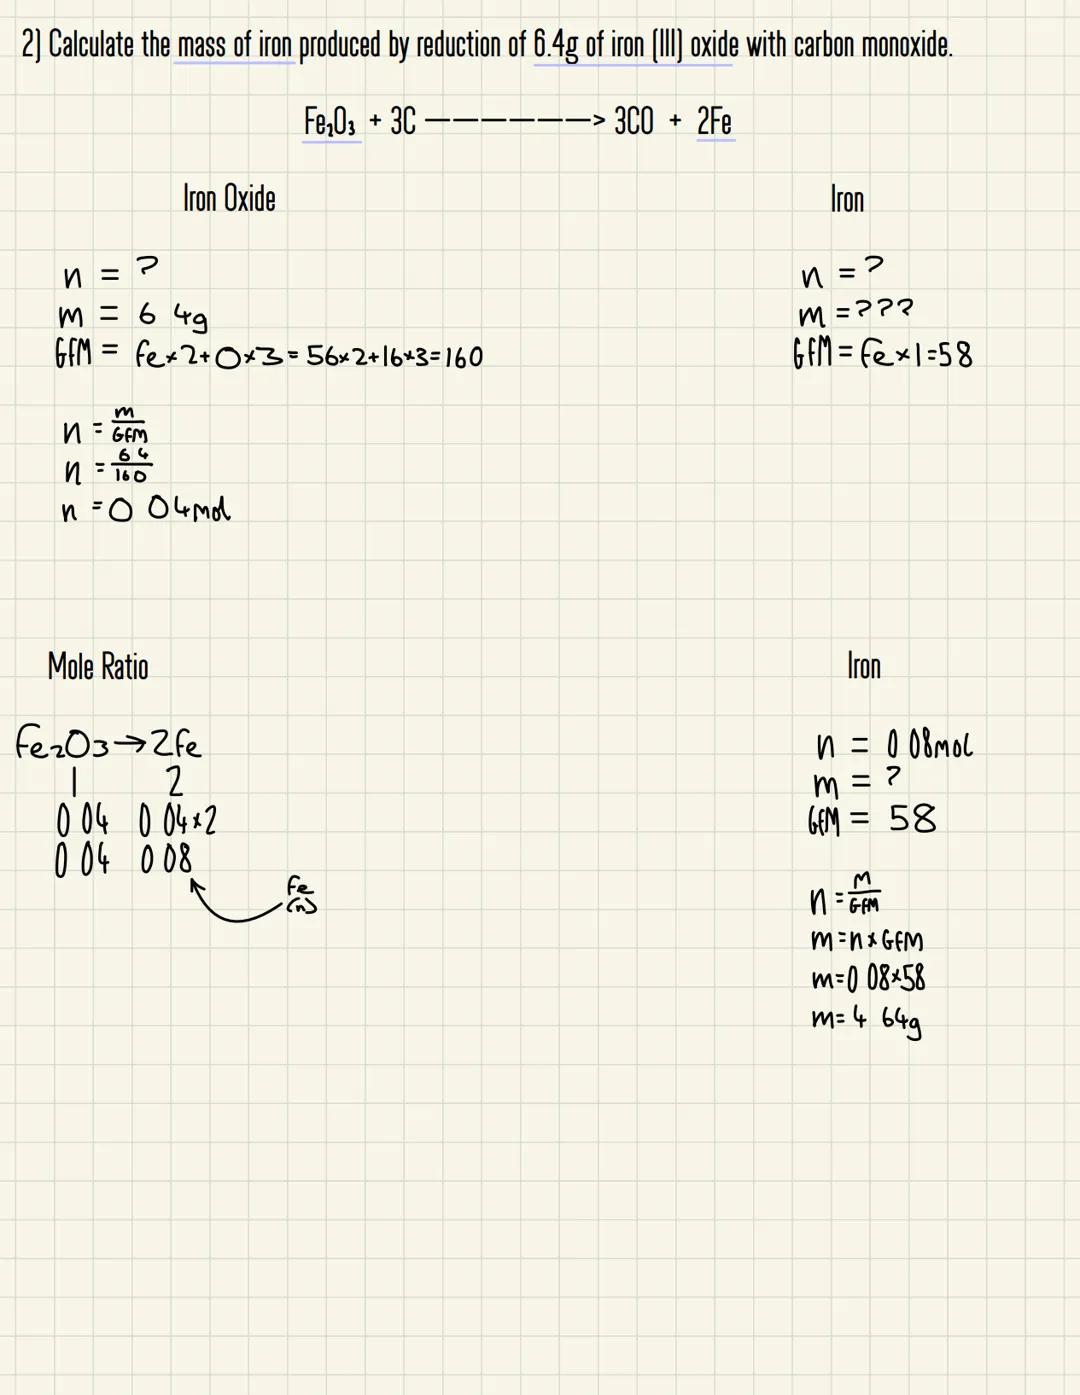 2) Calculate the mass of iron produced by reduction of 6.4g of iron (III) oxide with carbon monoxide.
Fe₂O₃ + 3C ———————> 3CO + 2Fe
Iron Oxide
n = ?
m = 6 4g
GFM = Fe×2+O×3=56×2+16×3=160
n = m/GFM
n = 6 4/160
n = 0 04mol
Iron
n = ?
m = ???
GFM = Fe×1=58
Mole Ratio
Fe₂O₃→2Fe
1 2
0 04 0 04×2
0 04 0 08
Fe
(n)
Iron
n = 0 08mol
m = ?
GFM = 58
n = m/GFM
m=n×GFM
m=0 08×58
m=4 64g